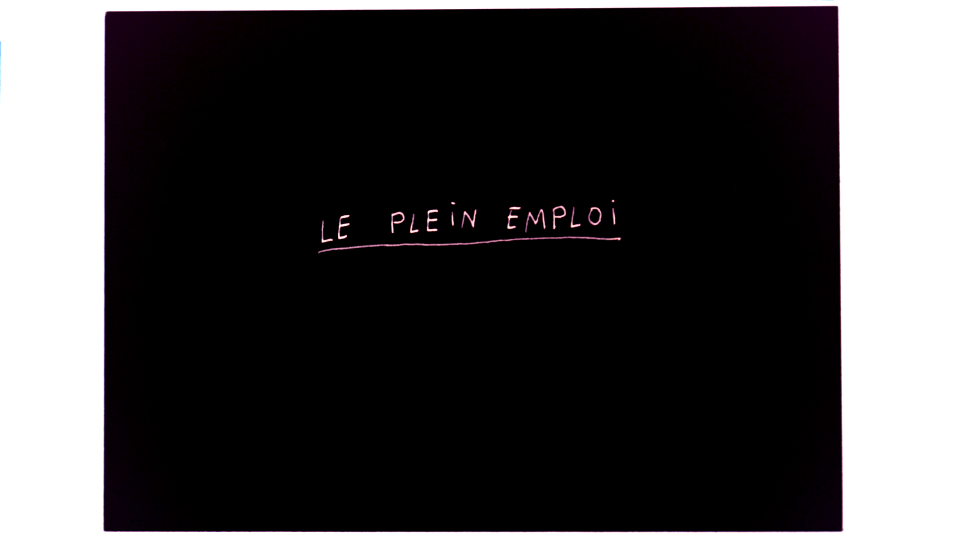 LE PLEiN EMPLOi